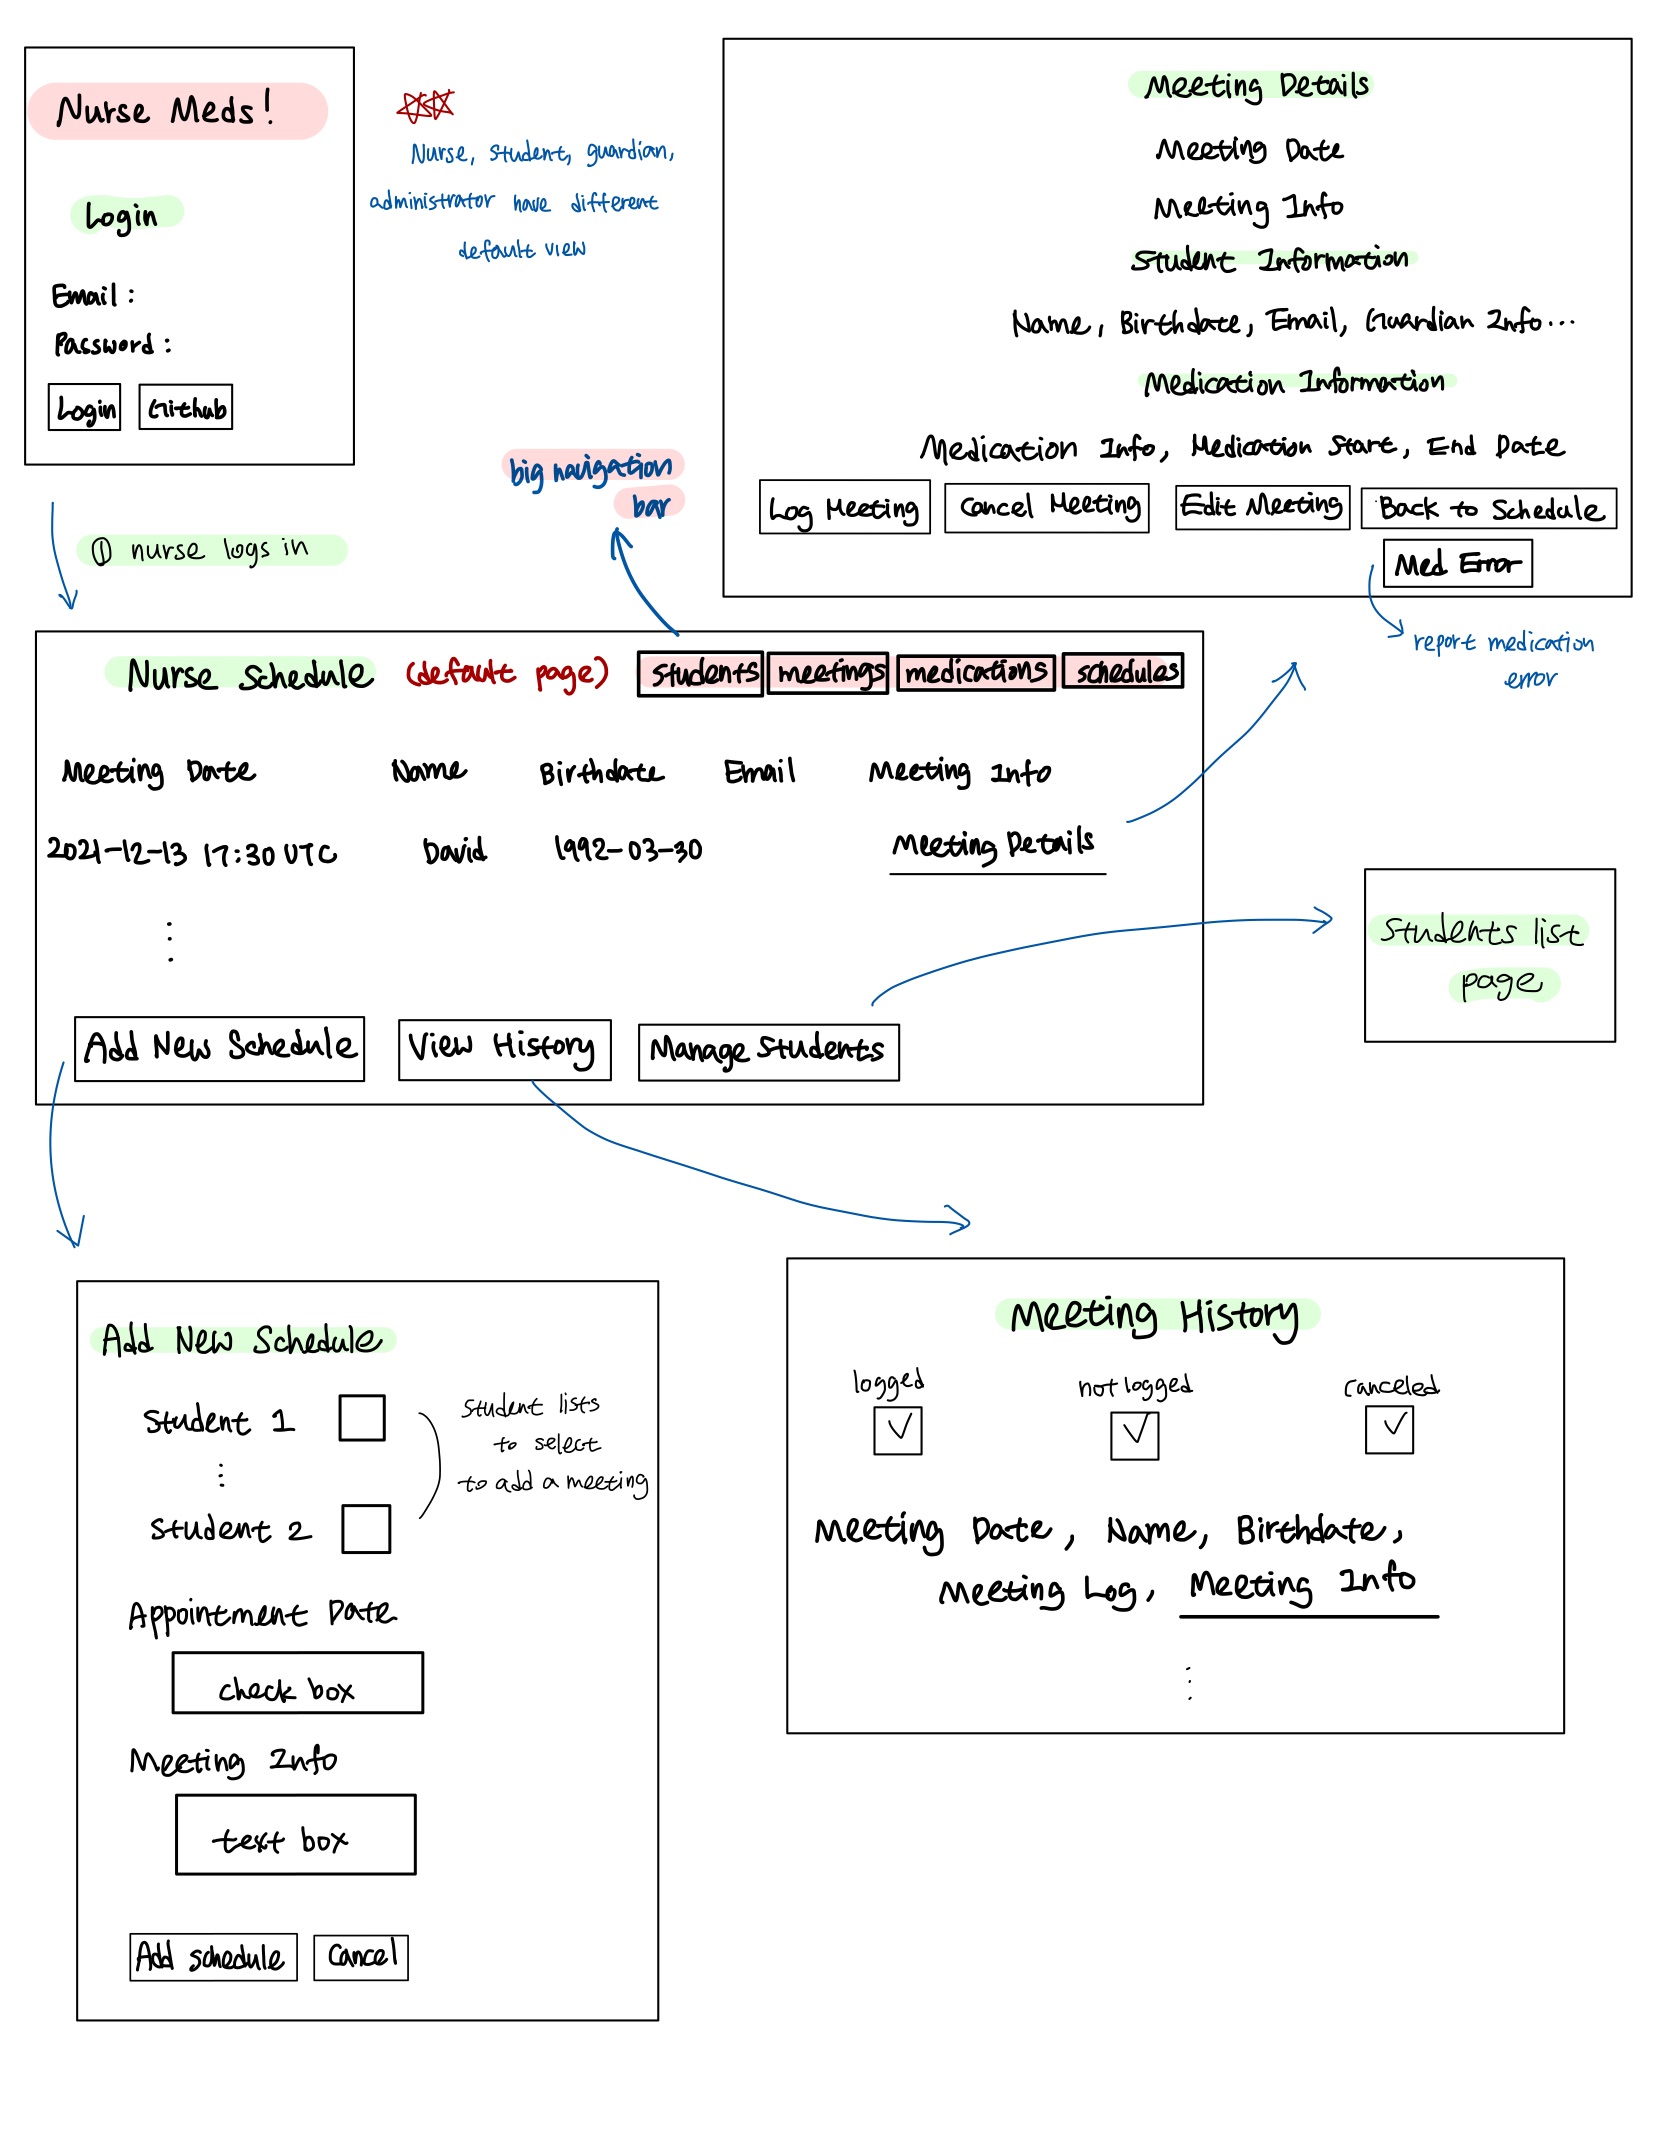 Nurse Meds!
Login
Email :
Password :
Login Github
Nurse, student, guardian,
administrator have different
default view
Meeting Details
Meeting Date
Meeting Info
Student Information
Name, Birthdate, Email, Guardian Info...
Medication Information
Medication Info, Medication Start, End Date
Log Meeting Cancel Meeting Edit Meeting Back to Schedule
Med Error
report medication
error
big navigation
bar
① nurse logs in
Nurse Schedule (default page) students meetings medications schedules
Meeting Date Name Birthdate Email Meeting Info
2021-12-13 17:30 UTC David 1992-03-30 Meeting Details
⋮
Add New Schedule View History Manage Students
Students list
page
Add New Schedule
Student 1
⋮
Student 2
Student lists
to select
to add a meeting
Appointment Date
check box
Meeting Info
text box
Add schedule Cancel
Meeting History
logged not logged canceled
Meeting Date, Name, Birthdate,
Meeting Log, Meeting Info
⋮